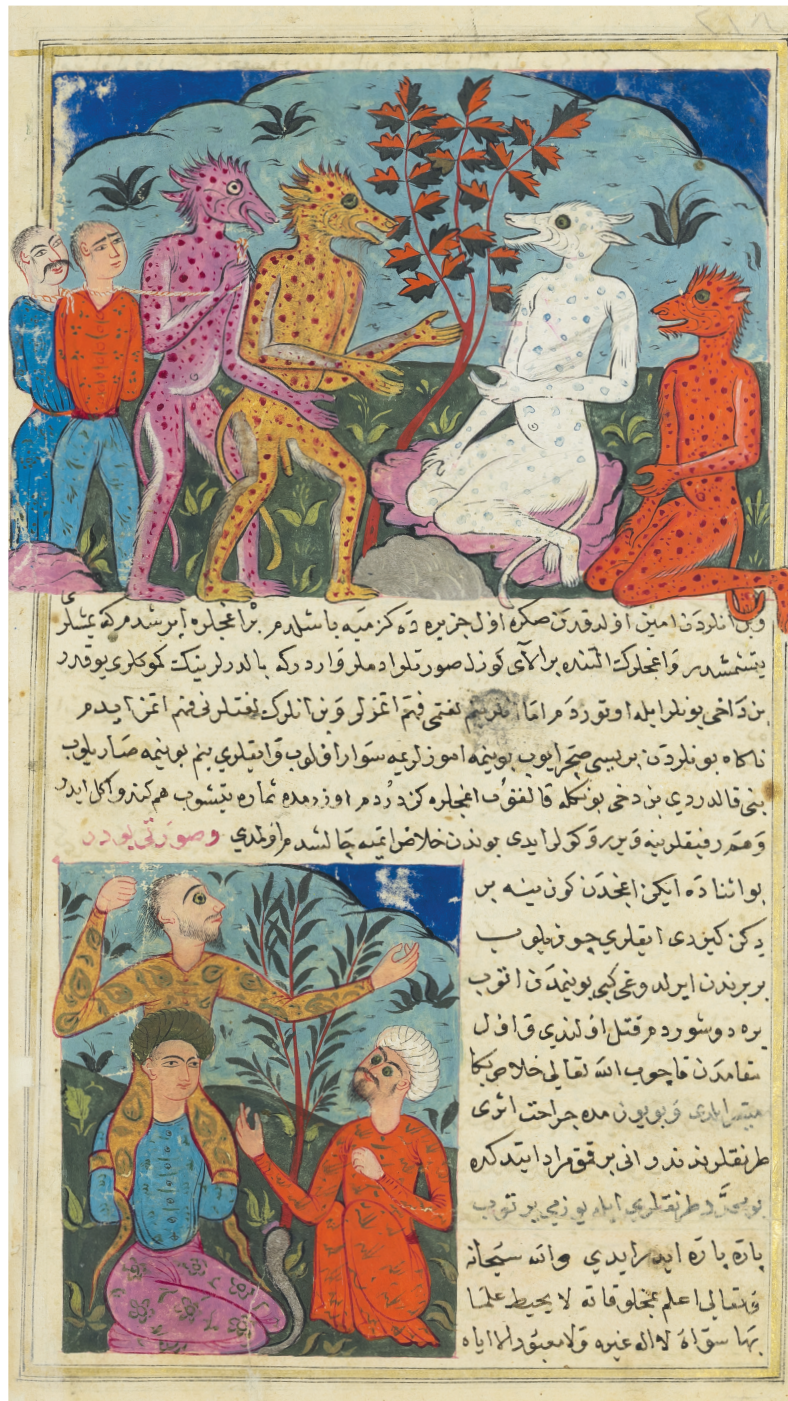 وبن انلردن امين اولدقدن صكره اول جزيره ده كزميه باشلدم بر اغاجلره ايرشدم كه يمشلری
يتشمشدر واغجلرك التنده بر الای كوزل صورتلو ادملر وارد كه بالدرلرينك كموكلری يوقدر
بن داخی بونلر ايله اوتوردم اما انلر بنم لغتمی فهم اتمزلر وبن انلرك لغتلرنی فهم اتمز ايدم
ناكاه بونلردن بريسی صچرايوب بوينمه اموزلرمه سوار اولوب وايقلری بنم بوينمه صاريلوب
بنی قالدردی بن دخی بونكله قالقوب اغجلره كزدردم اوزنده ثماره يتشوب هم كندو اكل ايدر
وهم رفيقلرينه ويررو كولر ايدی بوندن خلاص اتميه چالشدم اولمدی وصورتی بودر
بو اثناده ايكن اغجدن كوزينه بر
ديكن كيردی ايقلری چوزيلوب
بربرندن ايرلدوغی كبی بوينمدن اتوب
يره دوشوردم قتل اولندی واول
مقامدن قاچوب الله تعالی خلاص بكا
ميسر ايلدی وبوينمده جراحت اثری
طرنقلرندندر انی بر قوق مراد ايتدكده
طرنقلری ايله يوزمی يرتوب
پاره پاره ايدر ايدی والله سبحانه
وتعالی اعلم بمخلوقاته لا يحيط علما
بها سواه لا اله غيره ولا معبود الا اياه